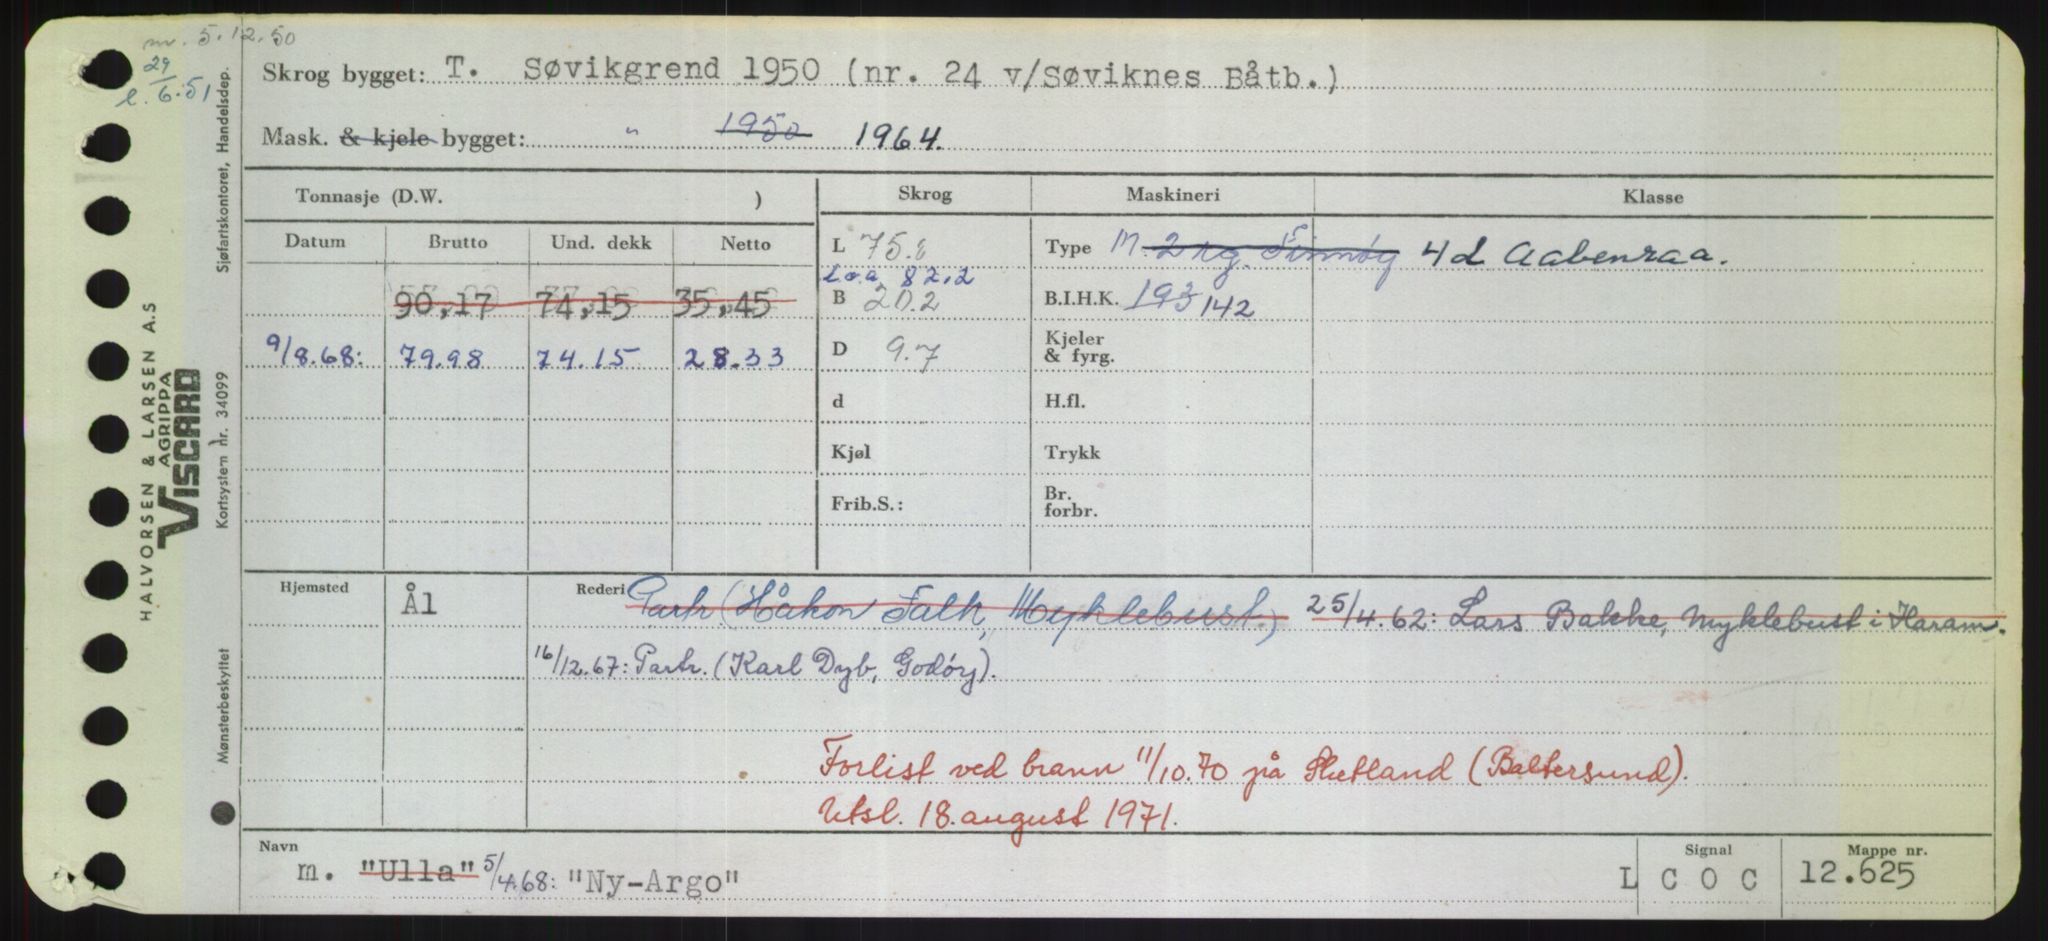 nr. 5.12.50
29
l. 6.51
Skrog bygget: T. Søvikgrend 1950 (nr. 24 v/Søviknes Båtb.)
Mask. & kjele bygget: " 1950 1964.
Tonnasje (D.W. ) Skrog Maskineri Klasse
Datum Brutto Und. dekk Netto
L 75. Type M. 2 sg. Finnøy 4d Aabenraa.
Loa 82,2
90,17 74,15 35,45 B 20.2 B.I.H.K. 193 142
9/8.68: 79.98 74.15 28.33 D 9.7 Kjeler & fyrg.
d H.fl.
Kjøl Trykk
Frib.S.: Br. forbr.
Hjemsted Ål Rederi Partr. (Håkon Falk, Myklebust.) 25/4.62: Lars Bakke, Myklebust i Haram.
16/12.67: Partr. (Karl Dyb, Godøy).
Forlist ved brann 11/10.70 på Shetland (Baltersund).
Utsl. 18. august 1971.
Navn Signal Mappe nr.
m. "Ulla" 5/4.68: "Ny-Argo" L C O C 12.625
HALVORSEN & LARSEN A.S
AGRIPPA
VISCARD
Mønsterbeskyttet Kortsystem nr. 34099 Sjøfartskontoret, Handelsdep.